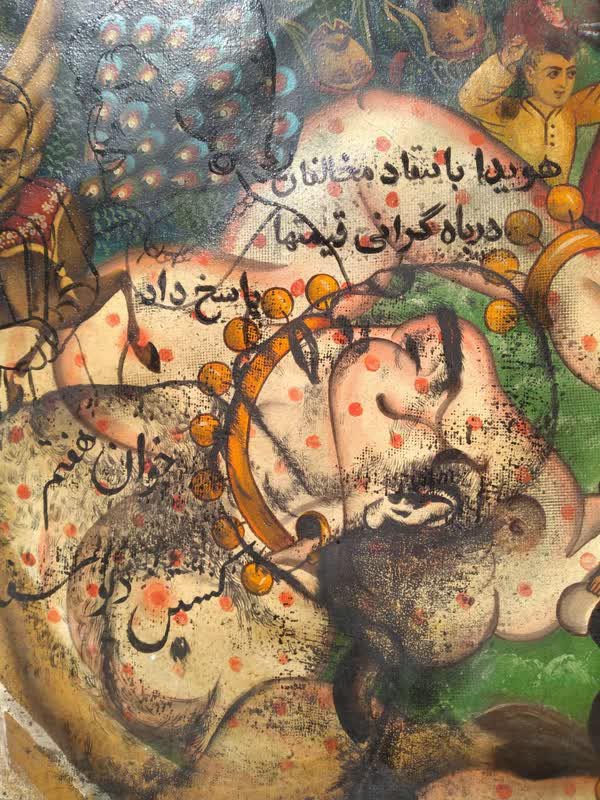 هویدا بانتقاد مخالفان
درباه گرانی قیمتها
پاسخ داد
خوان هفتم
کشتن دیو سف